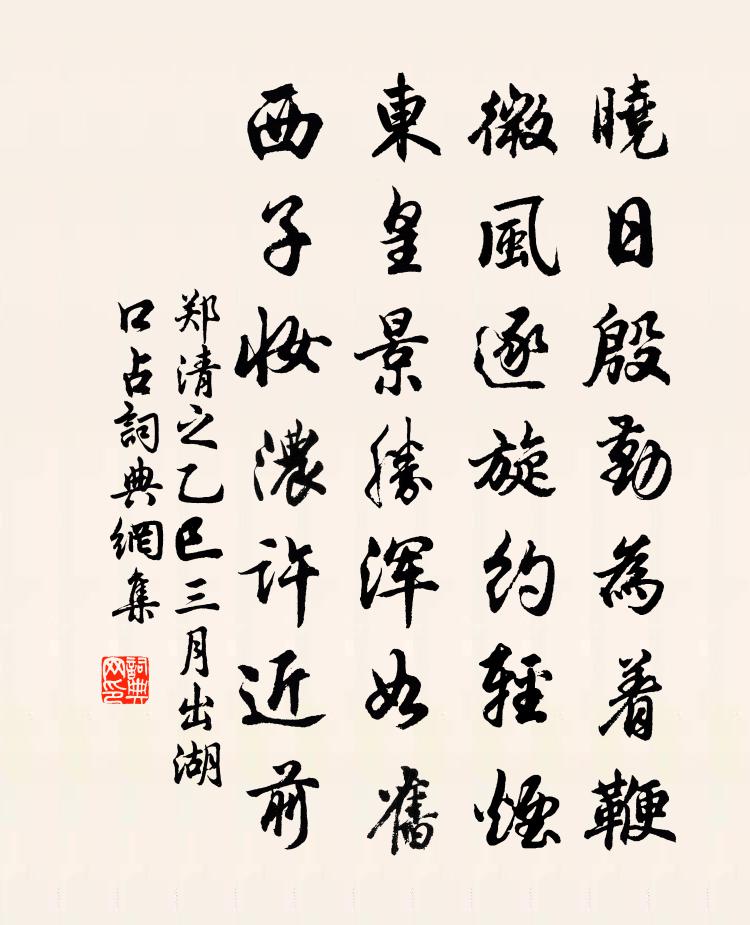 曉日殷勤為着鞭
微風逐旋約輕煙
東皇景勝浑如舊
西子妝濃許近前
郑清之乙巳三月出湖
口占詞典網集
詞典网印